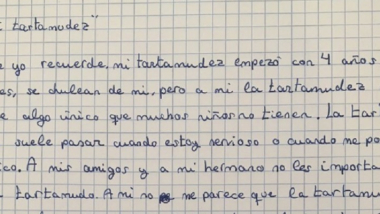 tartamudez"
yo recuerde, mi tartamudez empezó con 4 años
se chulean de mi, pero a mi la tartamudez
e algo único que muchos niños no tienen. La tar
suele pasar cuando estoy nervioso o cuando me po
ico. A mis amigos y a mi hermano no les importa
tartamudo. A mi no me parece que la tartamu